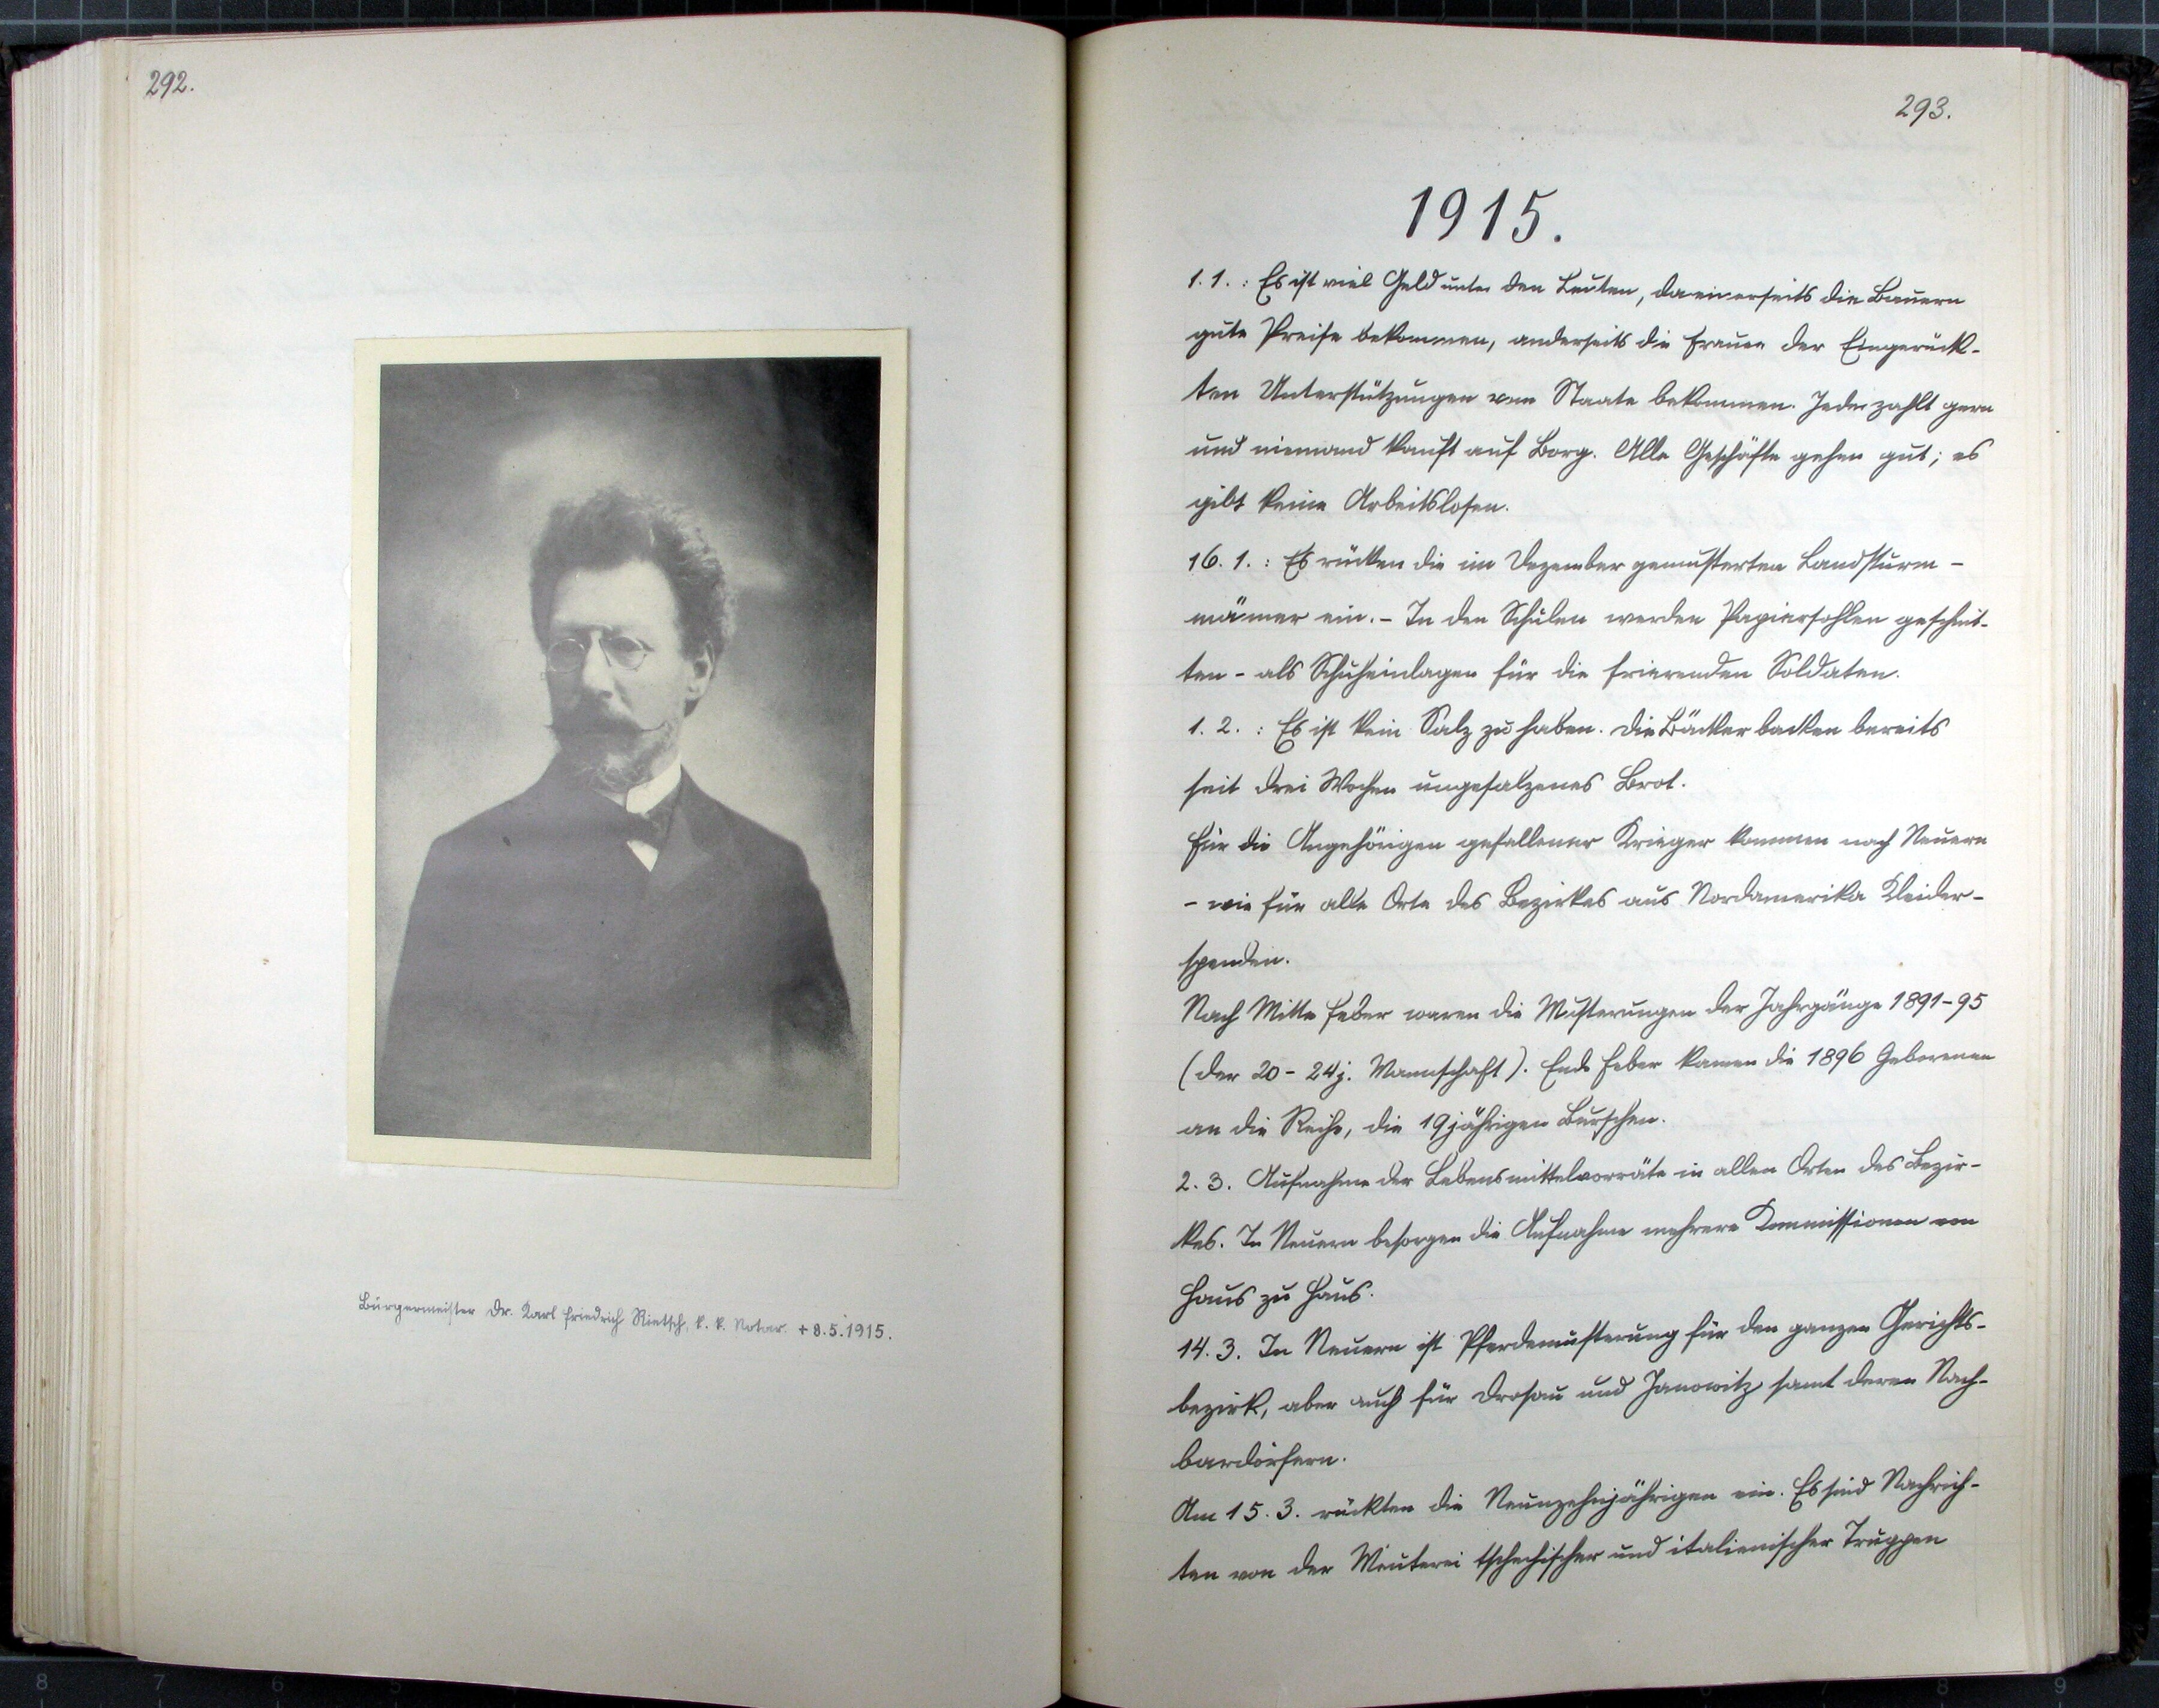 292.
Bürgermeister Dr. Karl Friedrich Rietsch, k. k. Notar. + 8.5.1915.
293.
1915.
1. 1. : Es ist viel Geld unter den Leuten, da einerseits die Bauern
gute Preise bekommen, anderseits die Frauen der Eingerück-
ten Unterstützungen vom Staate bekommen. Jeder zahlt gern
und niemand kauft auf Borg. Alle Geschäfte gehen gut; es
gibt keine Arbeitslosen.
16. 1. : Es rücken die im Dezember gemusterten Landsturm-
männer ein. - In den Schulen werden Papiersohlen geschnit-
ten - als Schuheinlagen für die frierenden Soldaten.
1. 2. : Es ist kein Salz zu haben. Die Bäcker backen bereits
seit drei Wochen ungesalzenes Brot.
Für die Angehörigen gefallener Krieger kommen nach Neuern
- wie für alle Orte des Bezirkes aus Nordamerika Kleider-
spenden.
Nach Mitte Feber waren die Musterungen der Jahrgänge 1891-95
(der 20 - 24j. Mannschaft). Ende Feber kamen die 1896 Geborenen
an die Reihe, die 19jährigen Burschen.
2. 3. Aufnahme der Lebensmittelvorräte in allen Orten des Bezir-
kes. In Neuern besorgen die Aufnahme mehrere Kommissionen von
Haus zu Haus.
14. 3. In Neuern ist Pferdemusterung für den ganzen Gerichts-
bezirk, aber auch für Drosau und Janowitz samt deren Nach-
bardörfern.
Am 15. 3. rückten die Neunzehnjährigen ein. Es sind Nachrich-
ten von der Meuterei tschechischer und italienischer Truppen